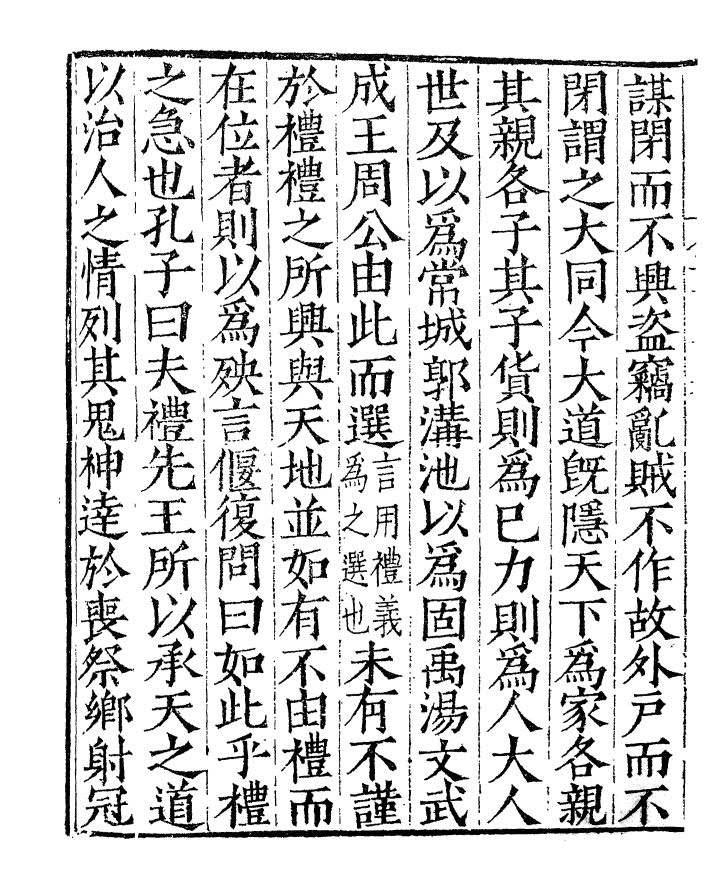 謀閉而不興盗竊亂賊不作故外戸而不
閉謂之大同今大道既隱天下爲家各親
其親各子其子貨則爲已力則爲人大人
世及以爲常城郭溝池以爲固禹湯文武
成王周公由此而選言用禮義爲之選也未有不謹
於禮禮之所興與天地並如有不由禮而
在位者則以爲殃言偃復問曰如此乎禮
之急也孔子曰夫禮先王所以承天之道
以治人之情列其鬼神達於喪祭鄉射冠